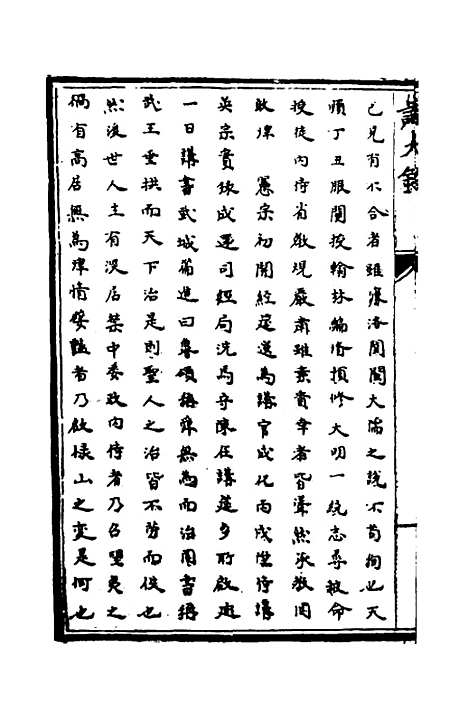 己見有不合者雖濂洛関閩大儒之說不苟徇也天
順丁丑服闋授翰林編修預修大明一統志尋被命
授徒內侍省敎規嚴肅雖素貴幸者皆聳然承敎閏
敢肆 憲宗初開經筵選為講官成化丙戌陞侍講
英宗實錄成遷司經局洗馬守陳在講筵多所啟迪
一日講書武城篇進曰舜頌稱舜無為而治周書稱
武王垂拱而天下治是則聖人之治皆不勞而佚也
然後世人主有深居禁中委政內侍者乃召望夷之
禍有高居無為肆情嬖豔者乃啟祿山之變是何也